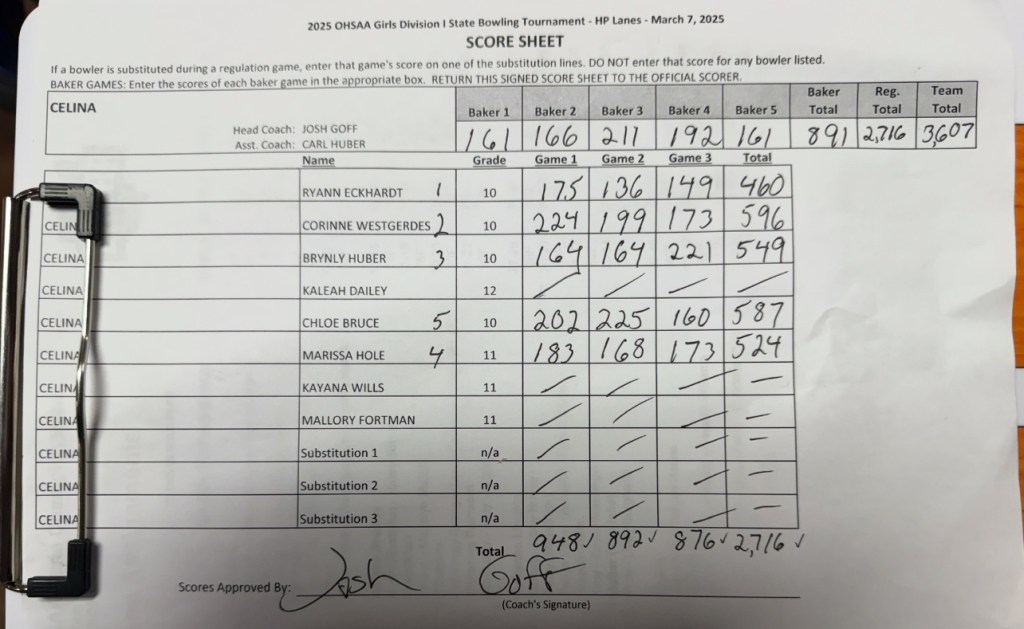 2025 OHSAA Girls Division I State Bowling Tournament - HP Lanes - March 7, 2025
SCORE SHEET
If a bowler is substituted during a regulation game, enter that game's score on one of the substitution lines. DO NOT enter that score for any bowler listed.
BAKER GAMES: Enter the scores of each baker game in the appropriate box. RETURN THIS SIGNED SCORE SHEET TO THE OFFICIAL SCORER.
CELINA Baker 1 Baker 2 Baker 3 Baker 4 Baker 5 Baker Total Reg. Total Team Total
Head Coach: JOSH GOFF
Asst. Coach: CARL HUBER 161 166 211 192 161 891 2,716 3,607
Name Grade Game 1 Game 2 Game 3 Total
RYANN ECKHARDT 1 10 175 136 149 460
CELIN CORINNE WESTGERDES 2 10 224 199 173 596
CELINA BRYNLY HUBER 3 10 164 164 221 549
CELINA KALEAH DAILEY 12 / / / /
CELINA CHLOE BRUCE 5 10 202 225 160 587
CELINA MARISSA HOLE 4 11 183 168 173 524
CELINA KAYANA WILLS 11 / / / –
CELINA MALLORY FORTMAN 11 / / / –
CELINA Substitution 1 n/a / / / –
CELINA Substitution 2 n/a / / / –
CELINA Substitution 3 n/a / / / –
Total 948✓ 892✓ 876✓ 2,716✓
Scores Approved By: Josh Goff
(Coach's Signature)